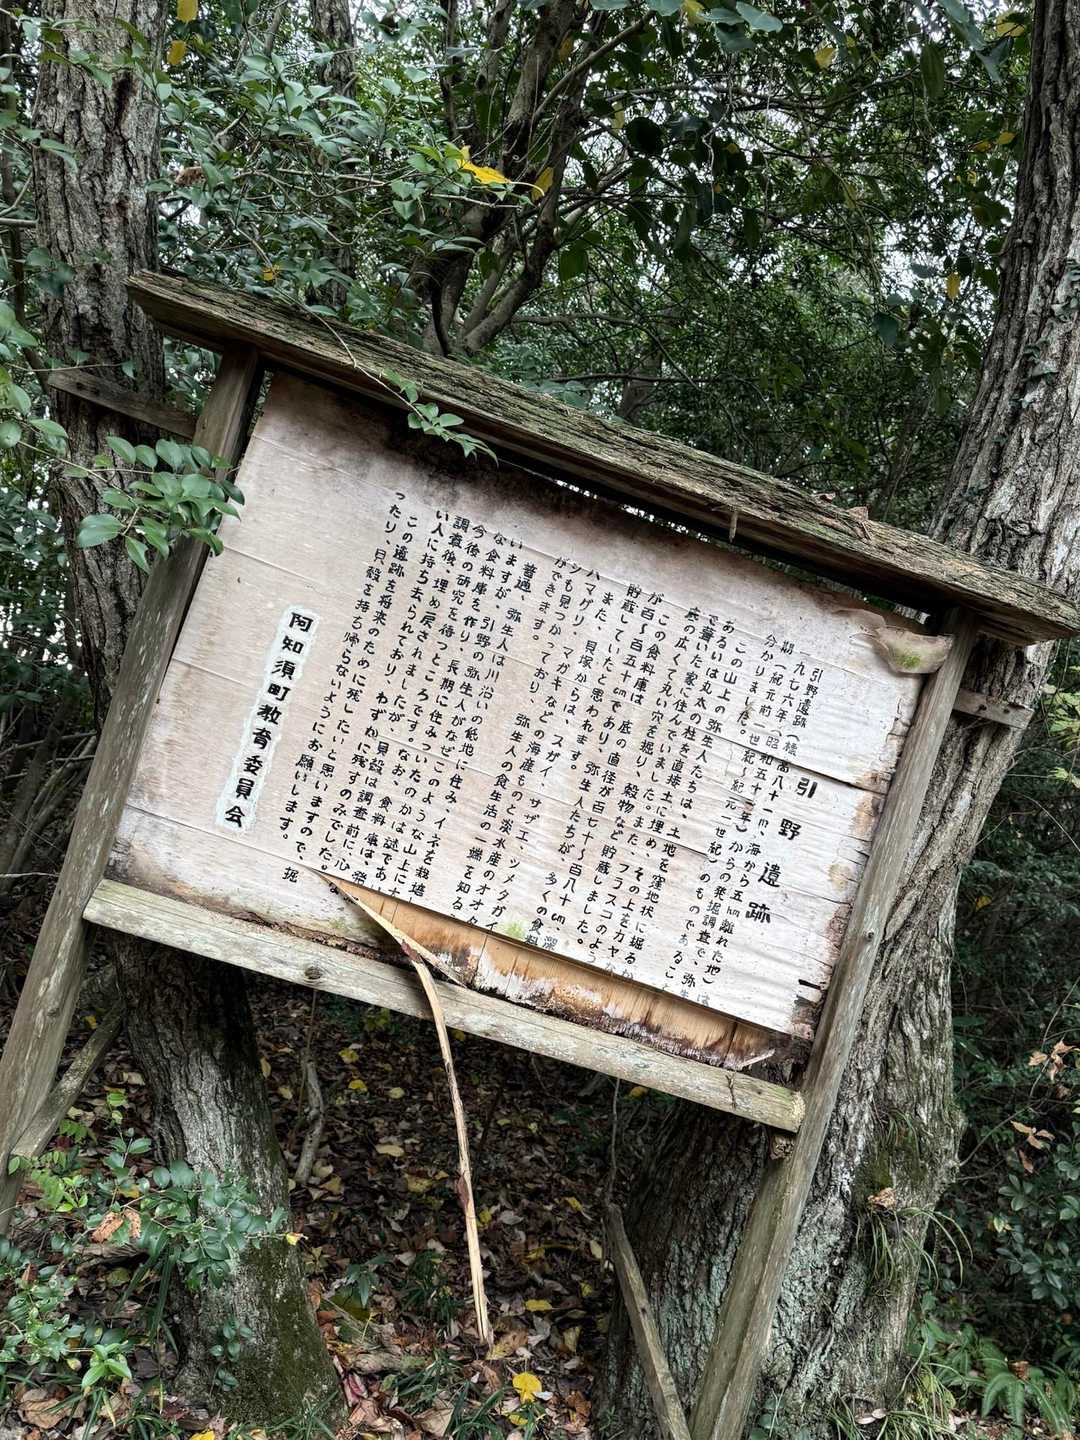 引野遺跡
引野遺跡(標高八十一m、海から五km離れた地)は
一九七六年(昭和五十一年)からの発掘調査で、弥生
期(紀元前一世紀~紀元一世紀)のものであること
今かりました。
この山上の弥生人たちは、土地を窪地状に掘るか
あるいは丸太の柱を直接土に埋め、その上をカヤな
で葺いた家に住んでいました。また、フラスコのよう
底の広くて丸い穴を掘り、穀物など貯蔵しました。
この食料庫は、底の直径が百七十~百八十cm、深
が百~百五十cmであり、弥生人たちが、多くの食料
貯蔵していたと思われます。
また、貝塚からは、スガイ、サザエ、ツメタガイ
ハマグリ、マガキなどの海産ものと淡水産のオオタ
シも見つかっており、弥生人の食生活の一端を知るこ
ができます。
普通、弥生人は川沿いの低地に住み、イネを栽培し
いますが、引野の弥生人がなぜこのような山上に大
な食料庫を作り、長期に住みついたのかは謎であり
今後の研究を待つところです。なお、食料庫は、発
調査後、埋め戻されましたが、貝殻は調査前に心な
い人に持ち去られており、わずかに残すのみでした。
この遺跡を将来のために残したいと思いますので、掘
ったり、貝殻を持ち帰らないようにお願いします。
阿知須町教育委員会